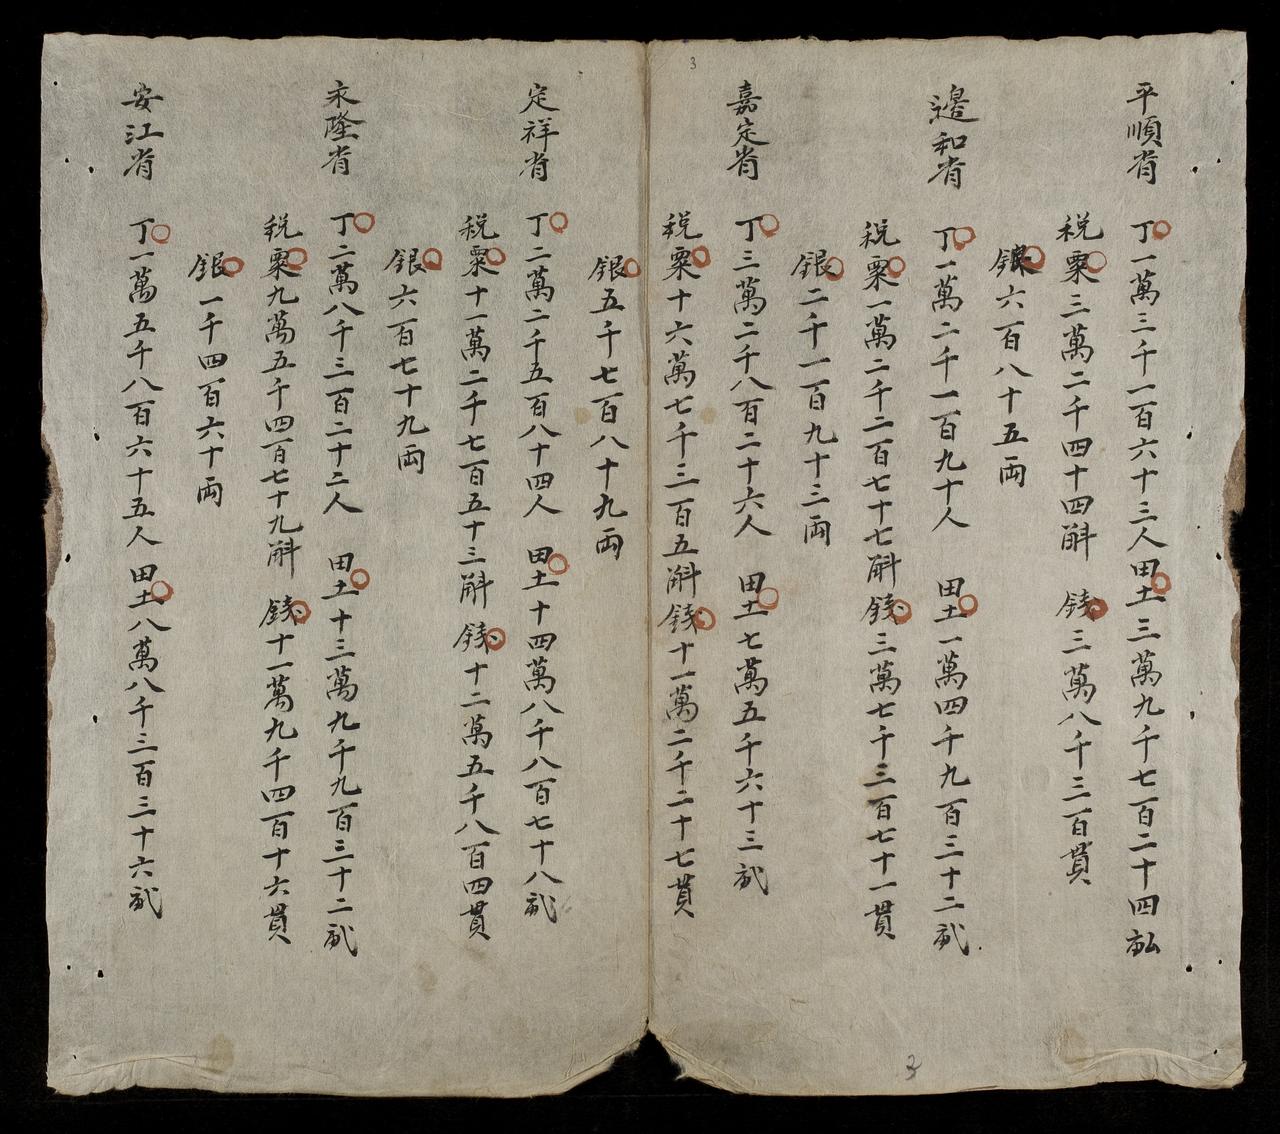 平順省 丁一萬三千一百六十三人田土三萬九千七百二十四畝
税粟三萬二千四十四斛 錢三萬八千三百貫
銀六百八十五両
邊和省 丁一萬二千一百九十人 田土一萬四千九百三十二畝
税粟一萬二千二百七十七斛錢三萬七千三百七十一貫
銀二千一百九十三両
嘉定省 丁三萬二千八百二十六人 田土七萬五千六十三畝
税粟十六萬七千三百五斛錢十一萬二千二十七貫
銀五千七百八十九両
定祥省 丁二萬二千五百八十四人 田土十四萬八千八百七十八畝
税粟十一萬二千七百五十三斛 錢十二萬五千八百四貫
銀六百七十九両
永隆省 丁二萬八千三百二十二人 田土十三萬九千九百三十二畝
税粟九萬五千四百七十九斛 錢十一萬九千四百十六貫
銀一千四百六十両
安江省 丁一萬五千八百六十五人 田土八萬八千三百三十六畝
3
3